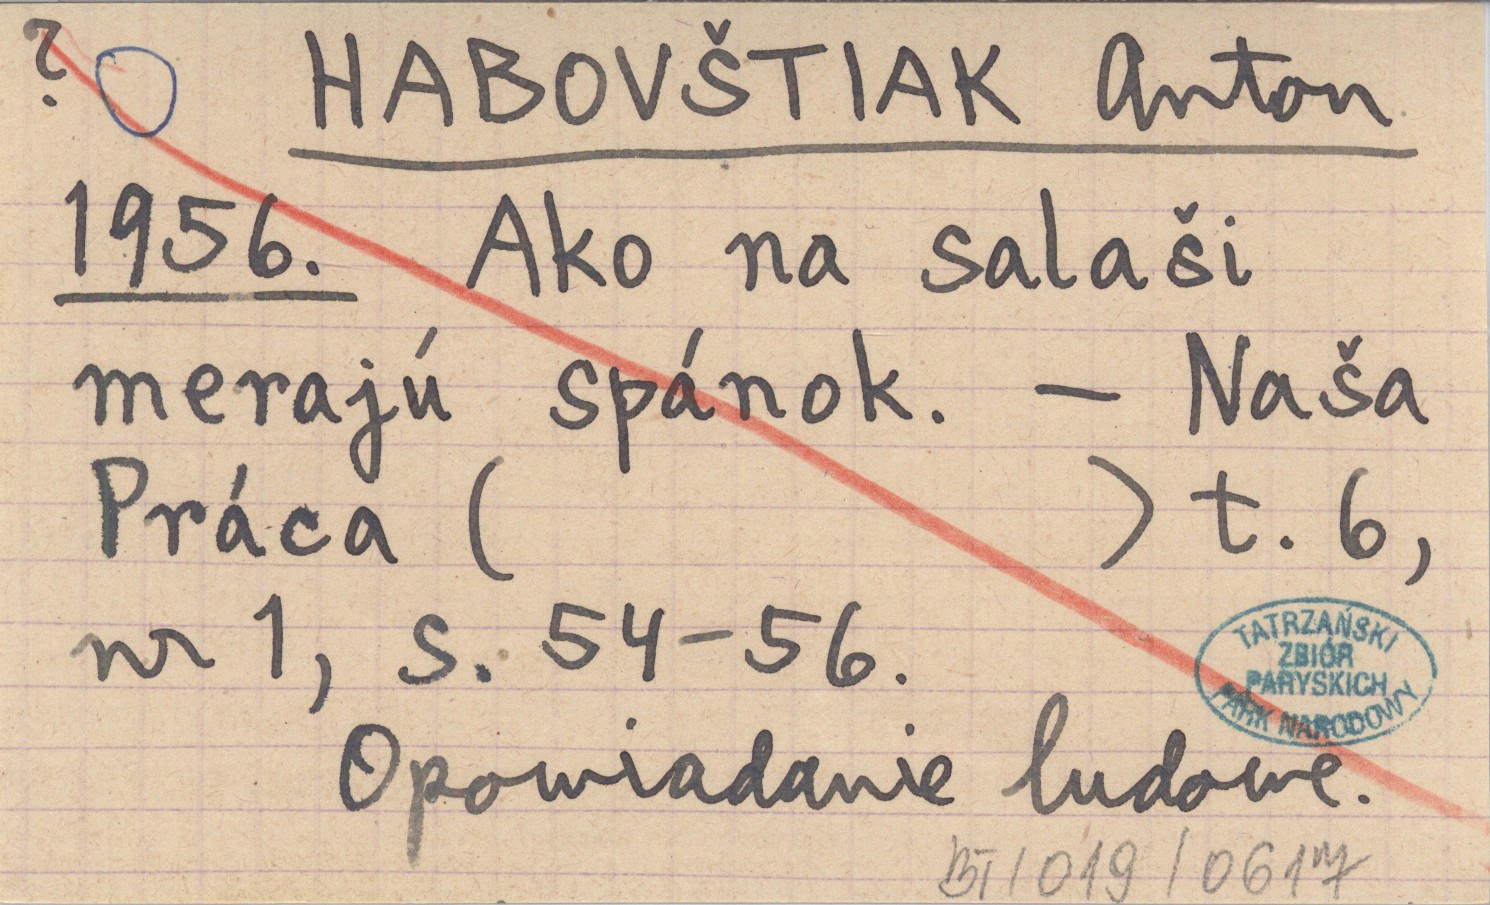 ? HABOVŠTIAK Anton
1956. Ako na salaši
merajú spánok. – Naša
Práca ( ) t. 6,
nr 1, s. 54–56.
TATRZAŃSKI
ZBIÓR
PARYSKICH
PARK NARODOWY
Opowiadanie ludowe.
BT/019/0617